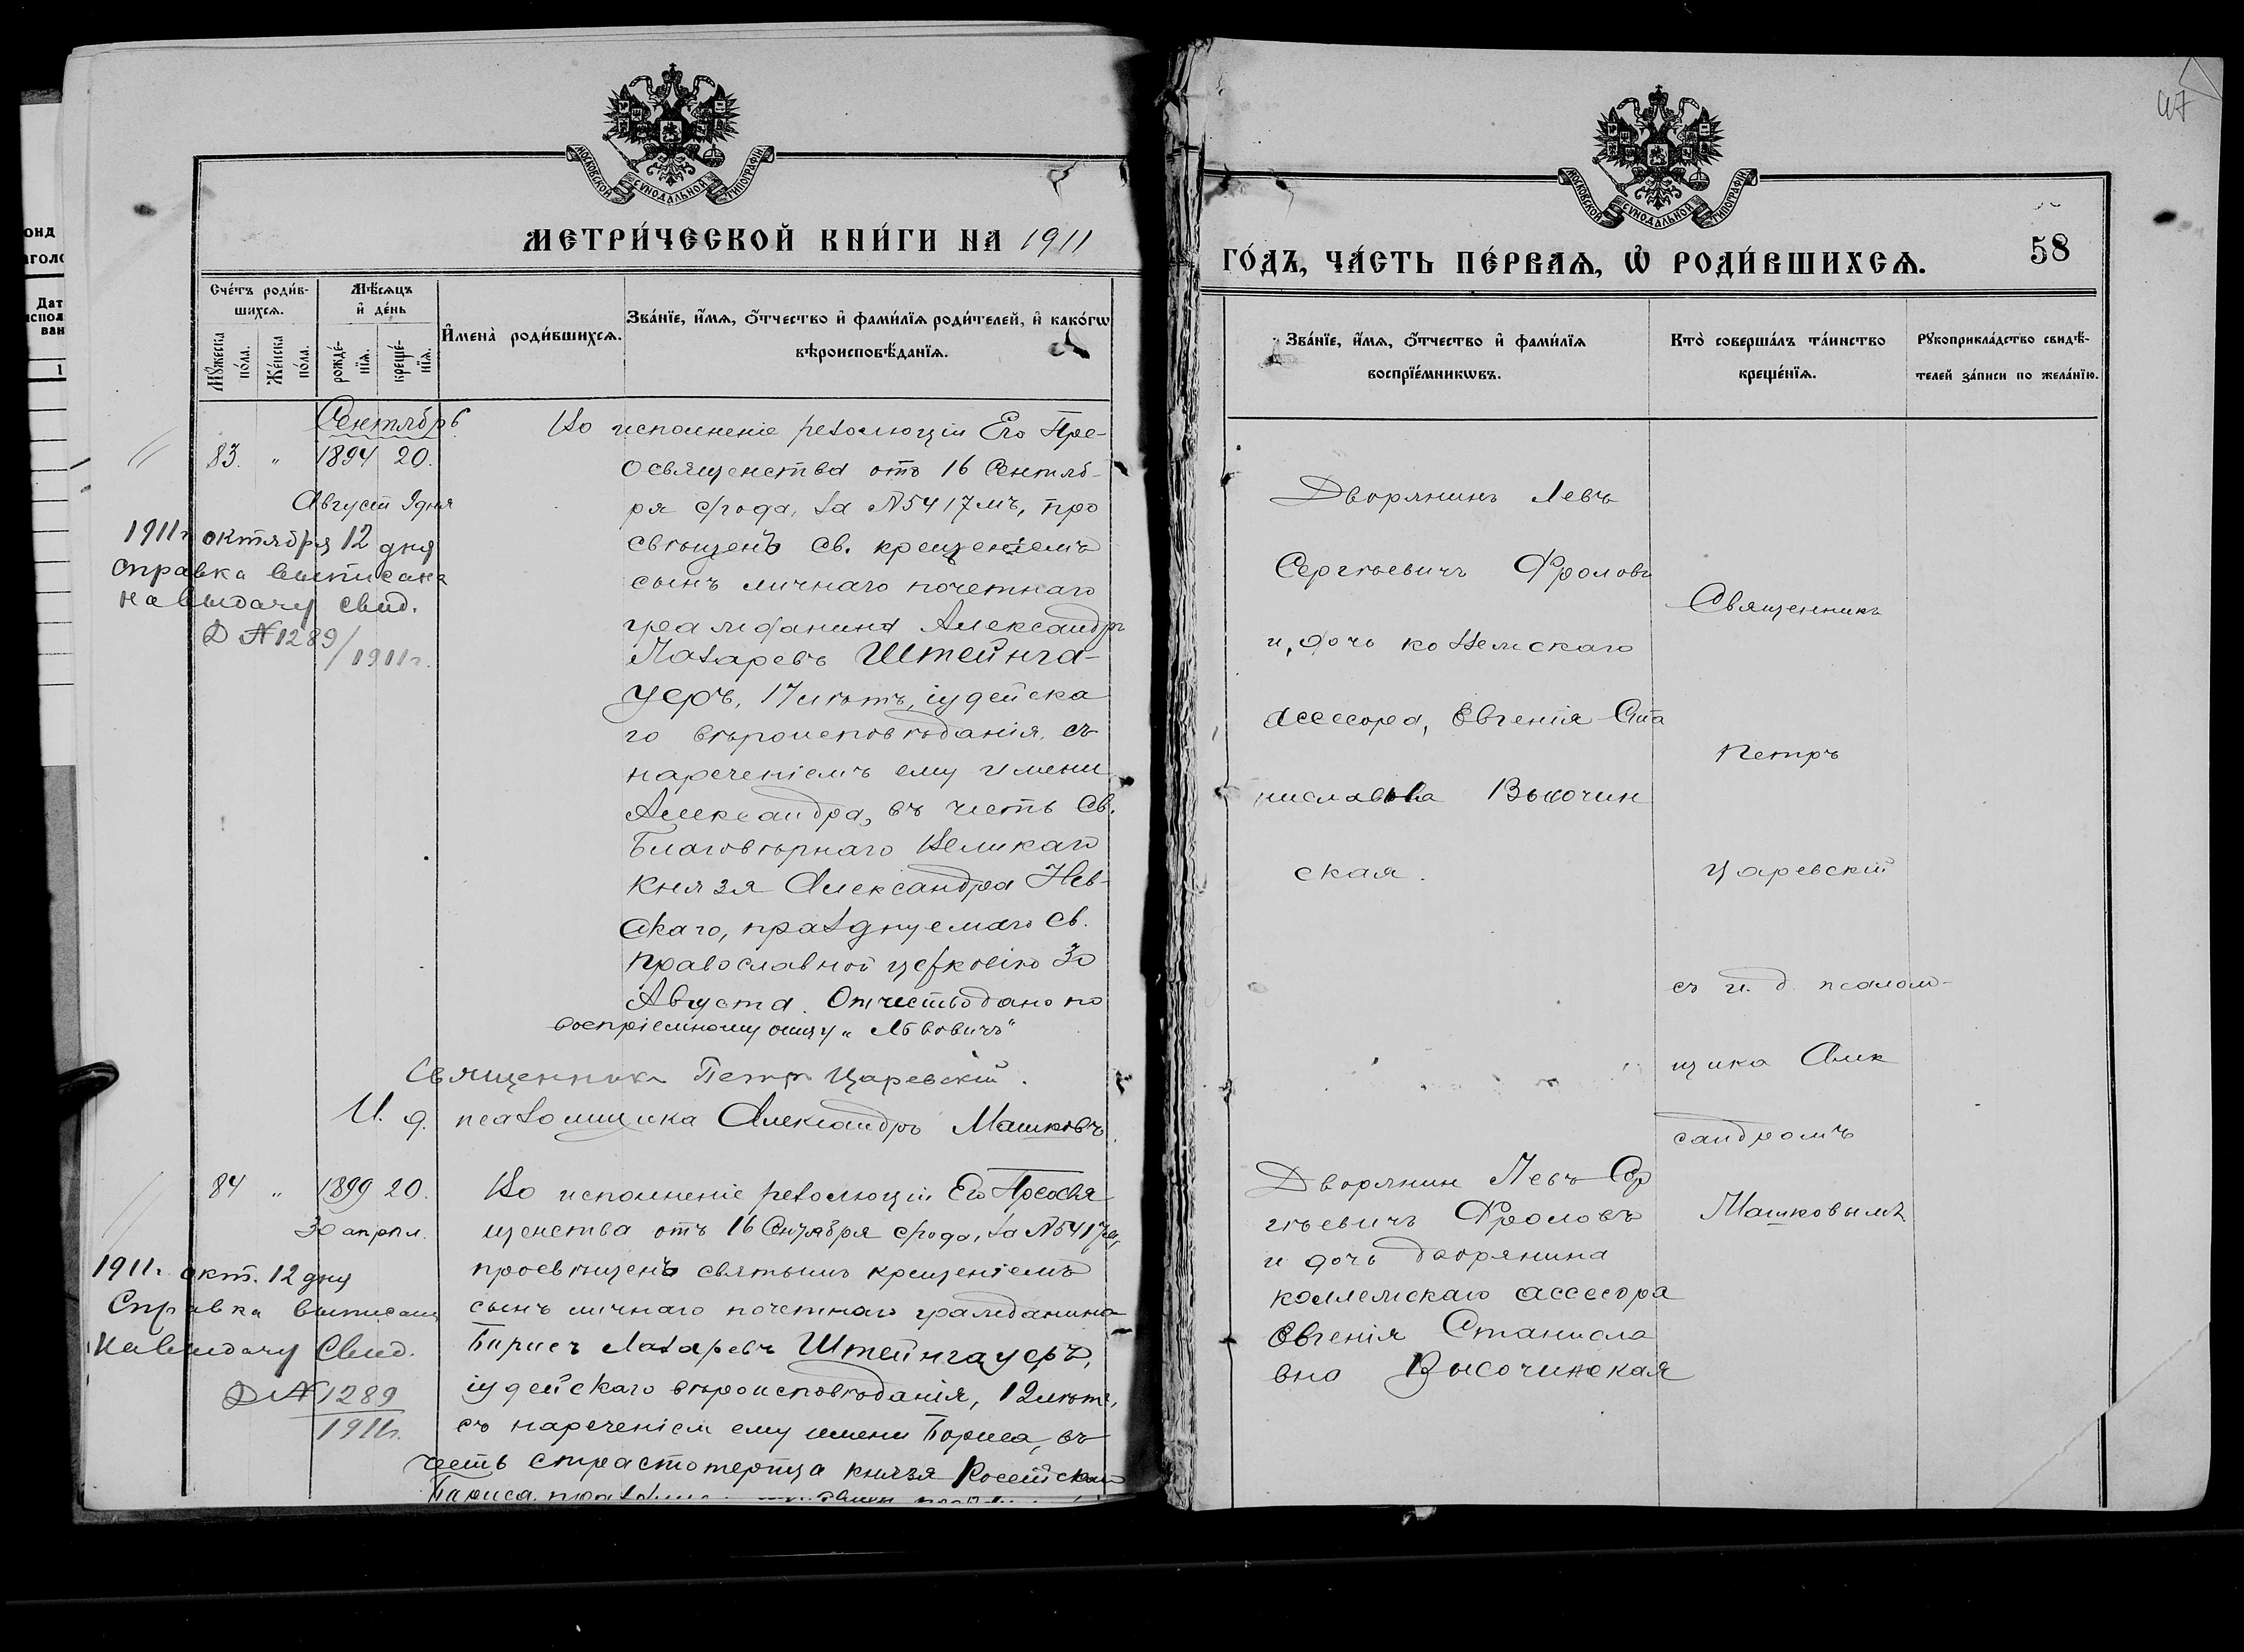 МОСКОВСКОЙ СѴНОДАЛЬНОЙ ТИПОГРАФІИ
МЕТРИ́ЧЕСКОЙ КНИ́ГИ НА 1911
Сче́тъ роди́в-
шихсѧ.
Мꙋ́жеска по́ла.
Же́нска по́ла.
Мѣ́сѧцъ и҆ де́нь
рожде́-нїѧ.
креще́-нїѧ.
И҆мена̀ роди́вшихсѧ.
Зва́нїе, и҆́мѧ, ѻ҆́тчество и҆ фами́лїѧ роди́телей, и҆ како́гѡ
вѣроисповѣ́данїѧ.
Сентябрь
83. " 1894 20.
Августъ 9 дня
1911 г. октября 12 дня
справка выписана
на выдачу свид.
Д № 1289/1911 г.
Во исполненіе резолюціи Его Пре-
освященства отъ 16 Сентяб-
ря с/года, за № 5417мъ, про
свѣщенъ св. крещеніемъ
сынъ личнаго почетнаго
гражданина Александръ
Лазаревъ Штейнга-
уеръ, 17 лѣтъ, іудейска
го вѣроисповѣданія, съ
нареченіемъ ему имени
Александра, въ честь Св.
Благовѣрнаго Великаго
Князя Александра Нев-
скаго, празднуемаго Св.
Православной церковію 30
Августа. Отчество дано по
воспріемному отцу „Львовичъ“
Священникъ Петръ Царевскій.
И. д. псаломщика Александръ Машковъ.
84 " 1899 20.
30 апрѣл.
1911 г. окт. 12 дня
Справка выписана
на выдачу Свид.
Д № 1289
1911 г.
Во исполненіе резолюціи Его Преосвя
щенства отъ 16 Сентября с/года, за № 5417мъ,
просвѣщенъ святымъ крещеніемъ
сынъ личнаго почетнаго гражданина
Борисъ Лазаревъ Штейнгауеръ,
іудейскаго вѣроисповѣданія, 12 лѣтъ,
съ нареченіем ему имени Бориса, въ
честь страстотерпца князя Россійскаго
Бориса,
МОСКОВСКОЙ СѴНОДАЛЬНОЙ ТИПОГРАФІИ
47
ГО́ДЪ, ЧА́СТЬ ПЕ́РВАѦ, Ѡ҆ РОДИ́ВШИХСѦ.
58
Зва́нїе, и҆́мѧ, ѻ҆́тчество и҆ фами́лїѧ
воспрїе́мникѡвъ.
Кто̀ соверша́лъ та́инство
креще́нїѧ.
Рꙋкоприкла́дство свидѣ́-
телей за́писи по жела́нїю.
Дворянинъ Левъ
Сергѣевичъ Фроловъ
и дочь коллежскаго
ассесора, Евгенія Ста
ниславова Высочин
ская.
Священникъ
Петръ
Царевскій
съ и. д. псалом-
щика Алек
сандромъ
Машковымъ
Дворянин Левъ Сер
гѣевичъ Фроловъ
и дочь дворянина
коллежскаго ассесора
Евгенія Станисла
вна Высочинская